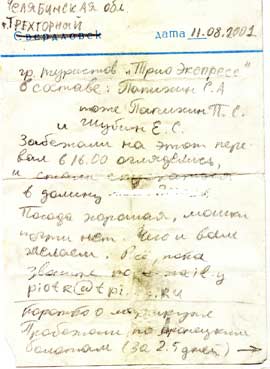 Челябинская обл.
г. Трехгорный
Свердловск дата 11.08.2001
гр. туристов „Трио Экспресс"
в составе: Папихин С.А
тоже Папихин П.С.
и Шубин Е.С.
Забежали на этот пере-
вал в 16.00 огляделись,
и стали спускаться
в долину
Погода хорошая, мошки
почти нет. Чего и вам
желаем. Всё, пока
Звоните по e-mail'у
piotr@tpi.
Коротко о маршруте
Пробежали по
болотам (за 2.5 дней) →